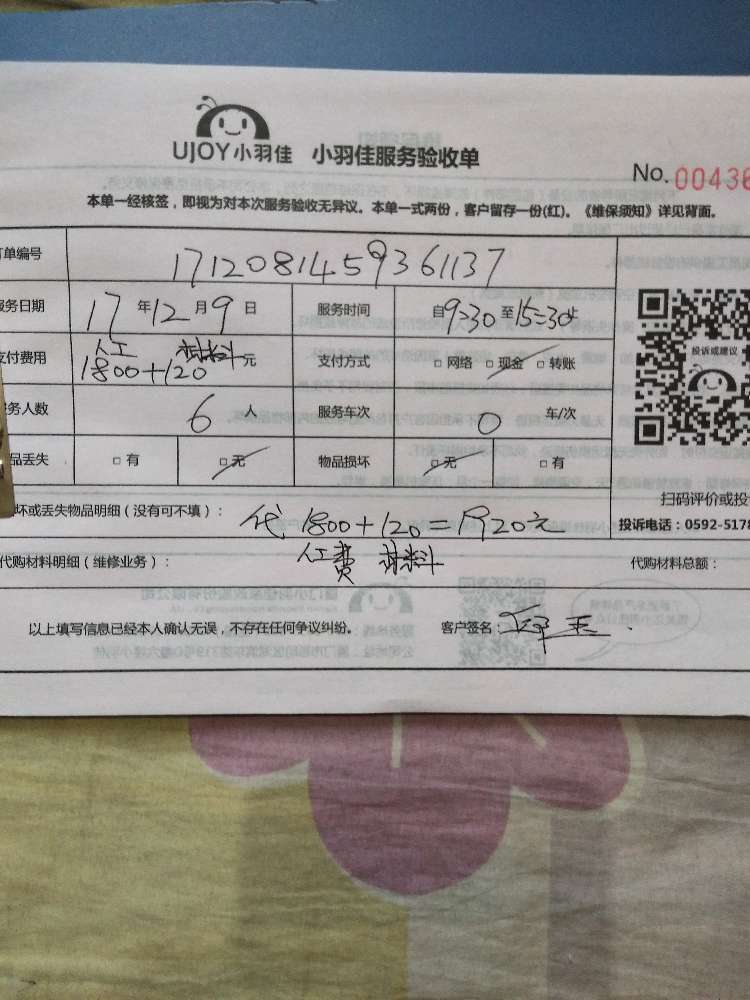 UJOY小羽佳 小羽佳服务验收单
No. 00436
本单一经核签，即视为对本次服务验收无异议。本单一式两份，客户留存一份(红)。《维保须知》详见背面。
订单编号 1712081459361137
服务日期 17 年 12 月 9 日 服务时间 自 9:30 至 15:30 止
支付费用 人工 材料
1800+120 元 支付方式 □ 网络 □ 现金 □ 转账
投诉或建议
服务人数 6 人 服务车次 0 车/次
品丢失 □ 有 □ 无 物品损坏 □ 无 □ 有
扫码评价或投
坏或丢失物品明细（没有可不填）： 1800+120=1920元
投诉电话：0592-5178
代购材料明细（维修业务）： 人工费 材料 代购材料总额：
以上填写信息已经本人确认无误，不存在任何争议纠纷。 客户签名：